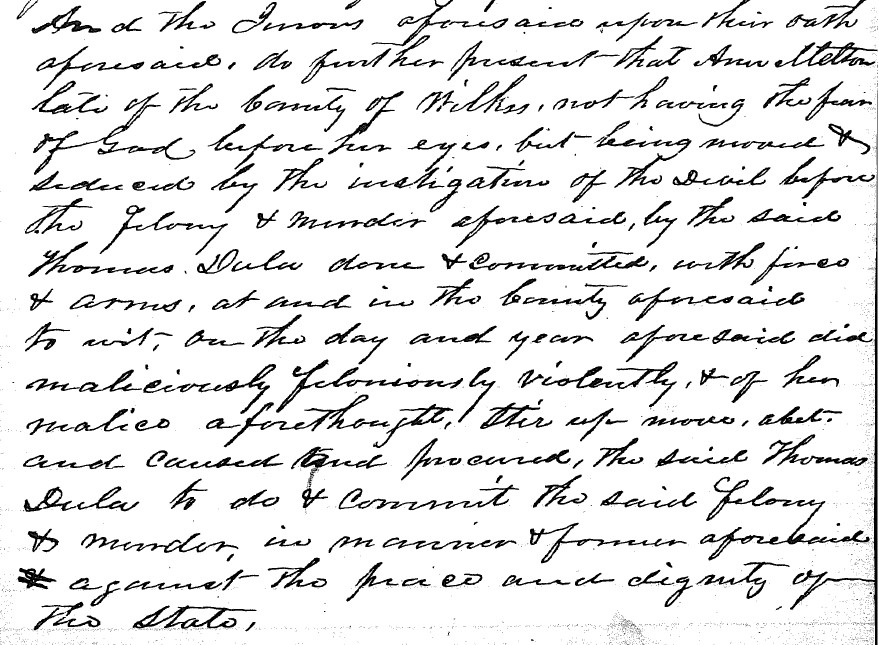 And the Jurors aforesaid upon their oath
aforesaid, do further present that Ann Melton
late of the County of Wilkes, not having the fear
of God before her eyes, but being moved &
seduced by the instigation of the Devil before
the felony & murder aforesaid, by the said
Thomas Dula done & committed, with force
& arms, at and in the County aforesaid
to wit, on the day and year aforesaid did
maliciously feloniously violently, & of her
malice aforethought, stir up move, abet.
and caused and procured, the said Thomas
Dula to do & commit the said felony
& murder, in manner & former aforesaid
against the peace and dignity of
the State,